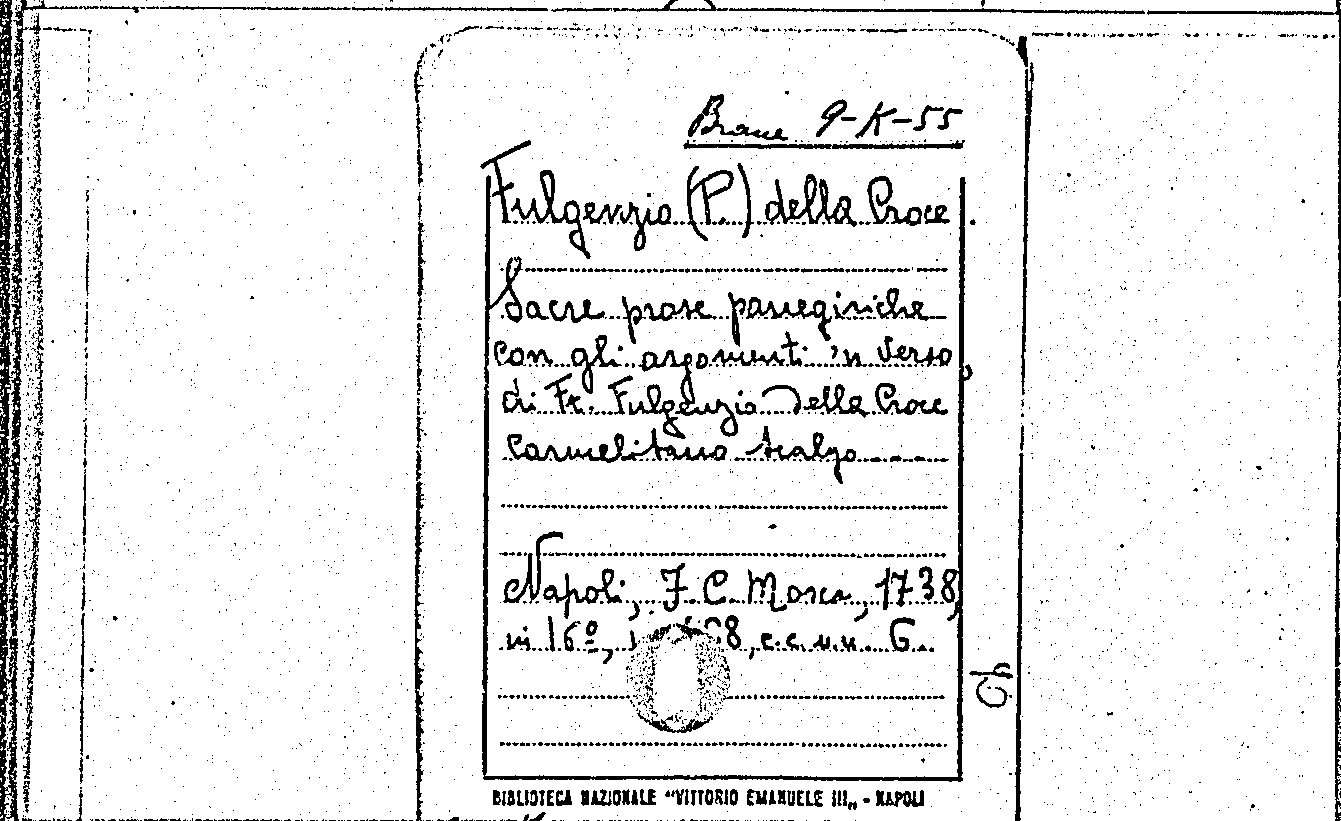 Branc 9-K-55
Fulgenzio (P.) della Croce.
Sacre prose panegiriche
con gli argomenti 'n verso,
di Fr. Fulgenzio della Croce
Carmelitano scalzo
Napoli, F. C. Mosca, 1738,
in 16º, 8, c.c. n.n. 6.
BIBLIOTECA NAZIONALE "VITTORIO EMANUELE III„ - NAPOLI